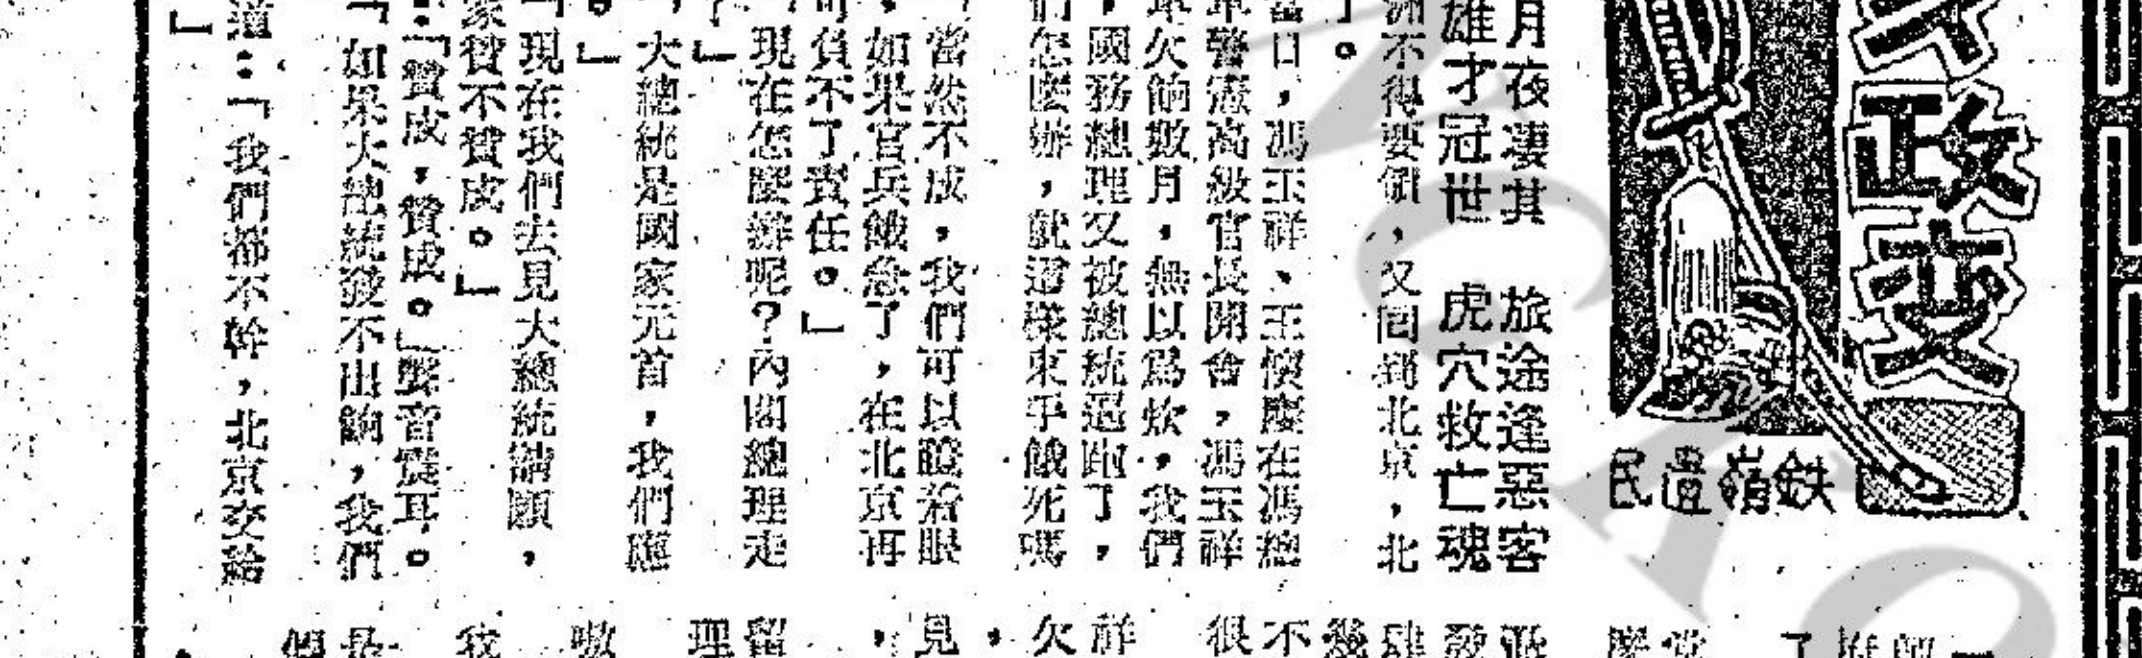 政變
鉄嶺遺民
月夜凄其　旅途逢惡客
雄才冠世　虎穴救亡魂
洲不得要領，又回到北京，北
。
當日，馮玉祥、王懷慶在馮總
軍警憲高級官長開會，馮玉祥
軍欠餉數月，無以爲炊，我們
，國務總理又被總統逼跑了，
們怎麽辦，就這樣束手餓死嗎
「當然不成，我們可以瞪着眼
，如果官兵餓急了，在北京再
可負不了責任。」
「現在怎麽辦呢？內閣總理走
」
「大總統是國家元首，我們應
。」
「現在我們去見大總統請願，
家贊不贊成。」
：「贊成，贊成。」聲音震耳。
「如果大總統發不出餉，我們
道：「我們都不幹，北京交給
」
不
很
祥
欠
，
見
，
留
理
嗷
我
是